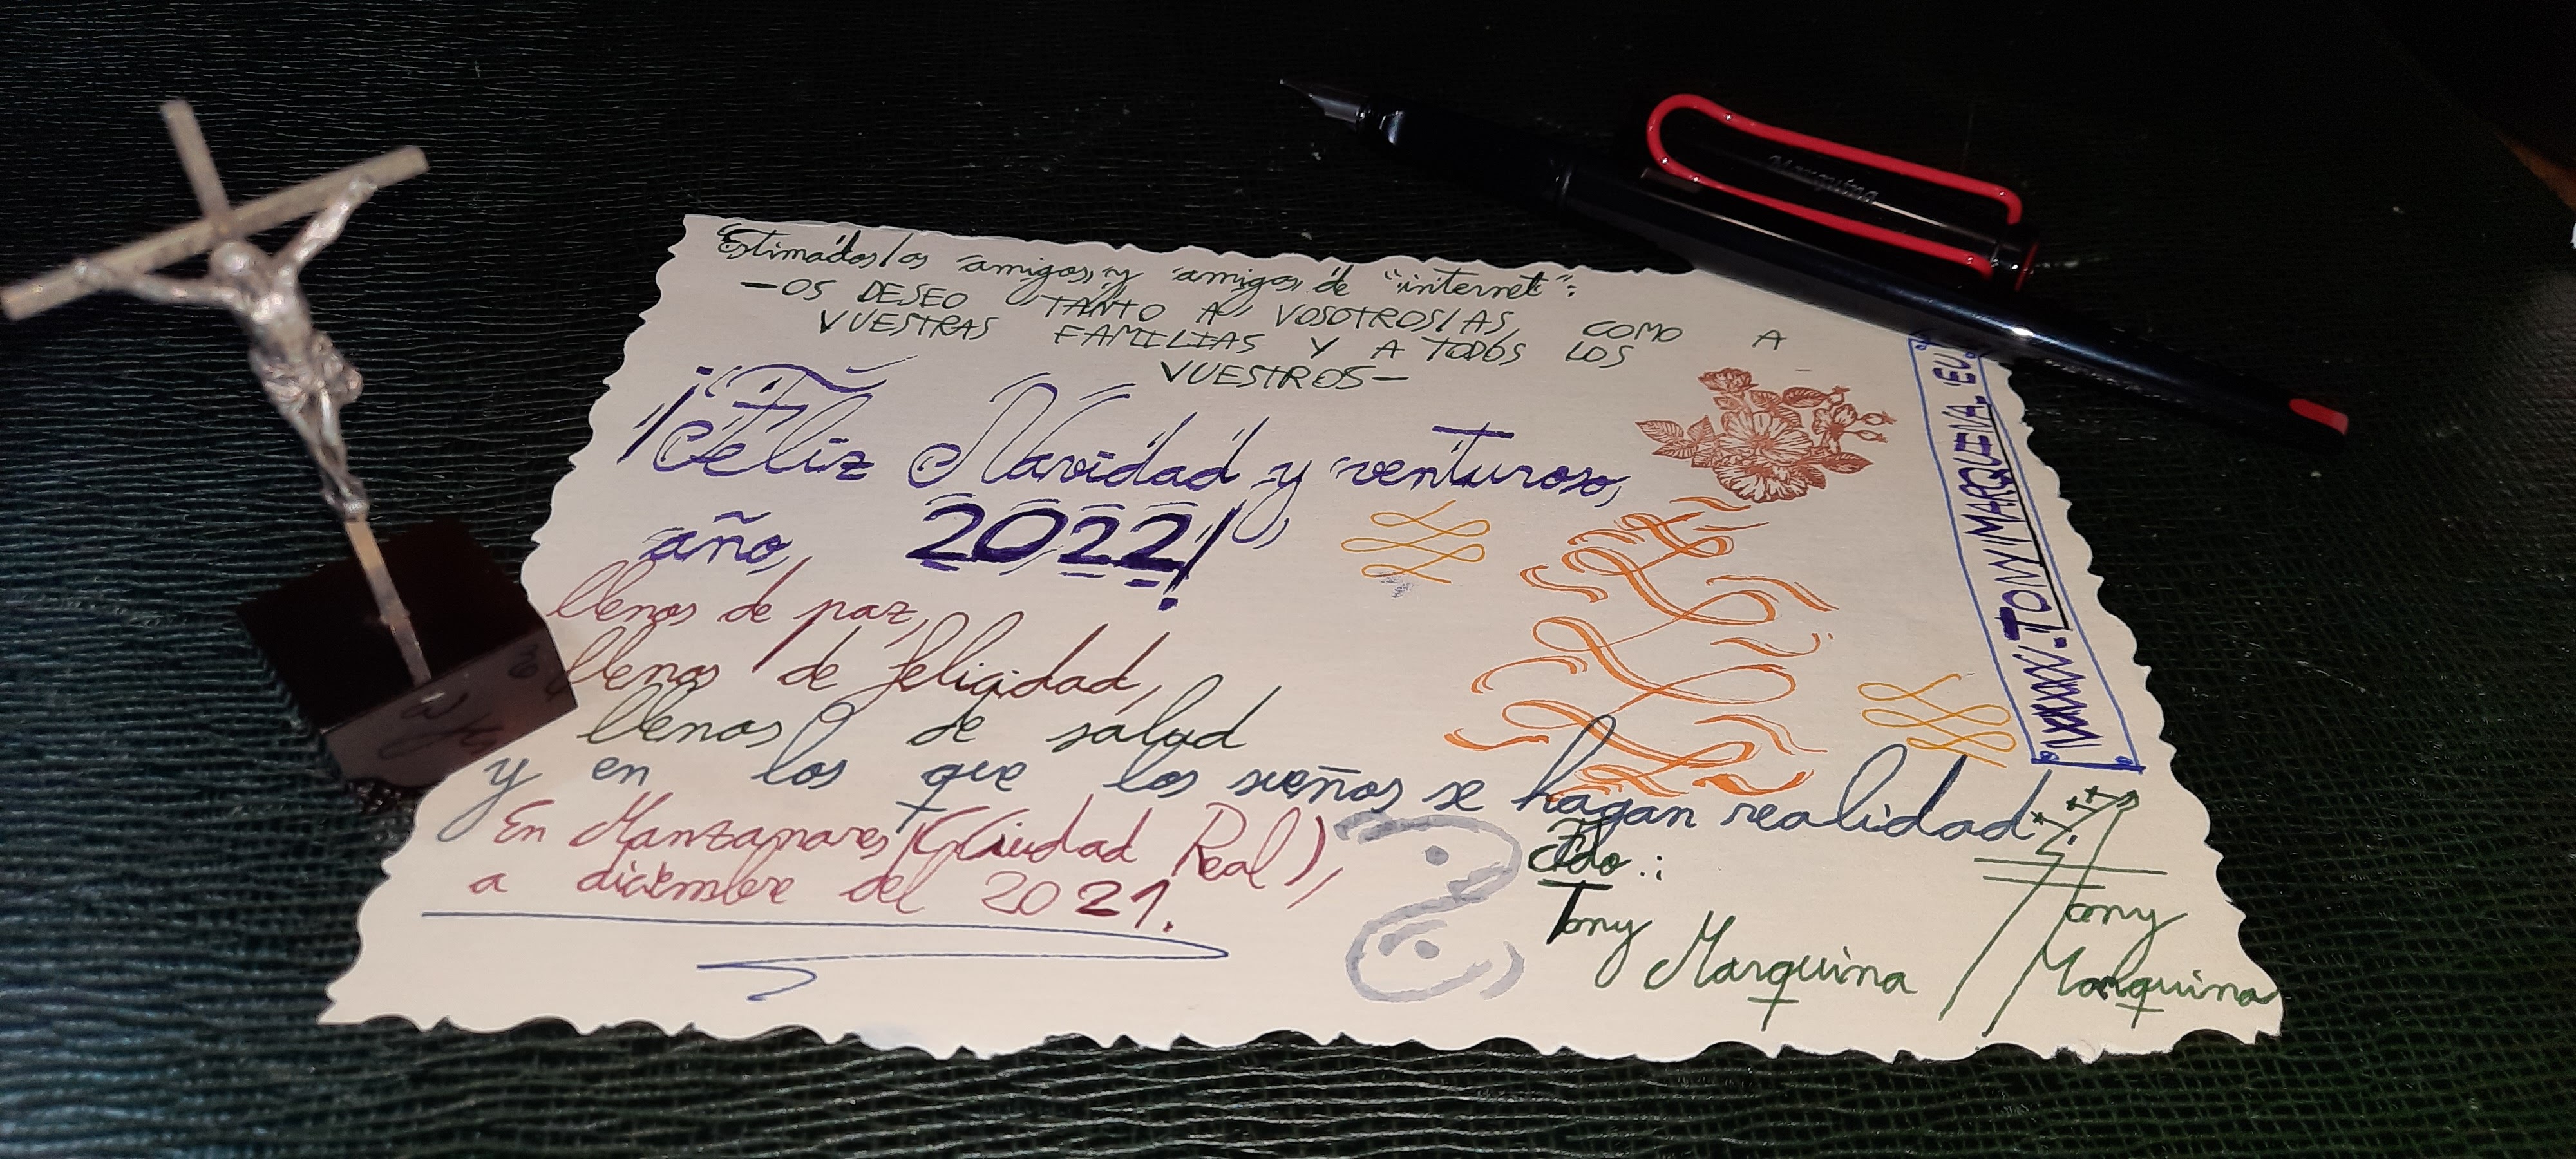 Estimados/as amigos, y amigas, de "internet":
-OS DESEO TANTO A VOSOTROS/AS, COMO A
VUESTRAS FAMILIAS Y A TODOS LOS
VUESTROS-
¡Feliz Navidad y venturoso,
año, 2022!
llenos de paz,
llenos de felicidad,
llenos de salud
y en los que los sueños se hagan realidad.
En Manzanares (Ciudad Real),
a diciembre del 2021.
Fdo.:
Tony
Marquina
Tony
Marquina
WWW.TONYMARQUINA.EU
Marquina